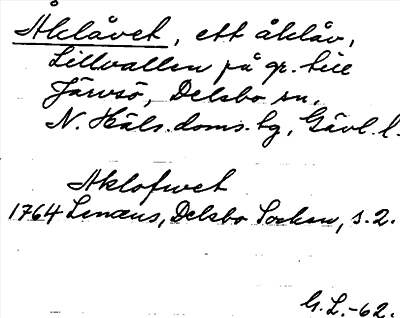 Åklåvet, ett åklåv,
Lillvallen på gr. till
Järvsö, Delsbo sn,
N. Häls. doms. hg, Gävl. l.
Aklofwet
1764 Lenæus, Delsbo Socken, s. 2.
G. L. -62.